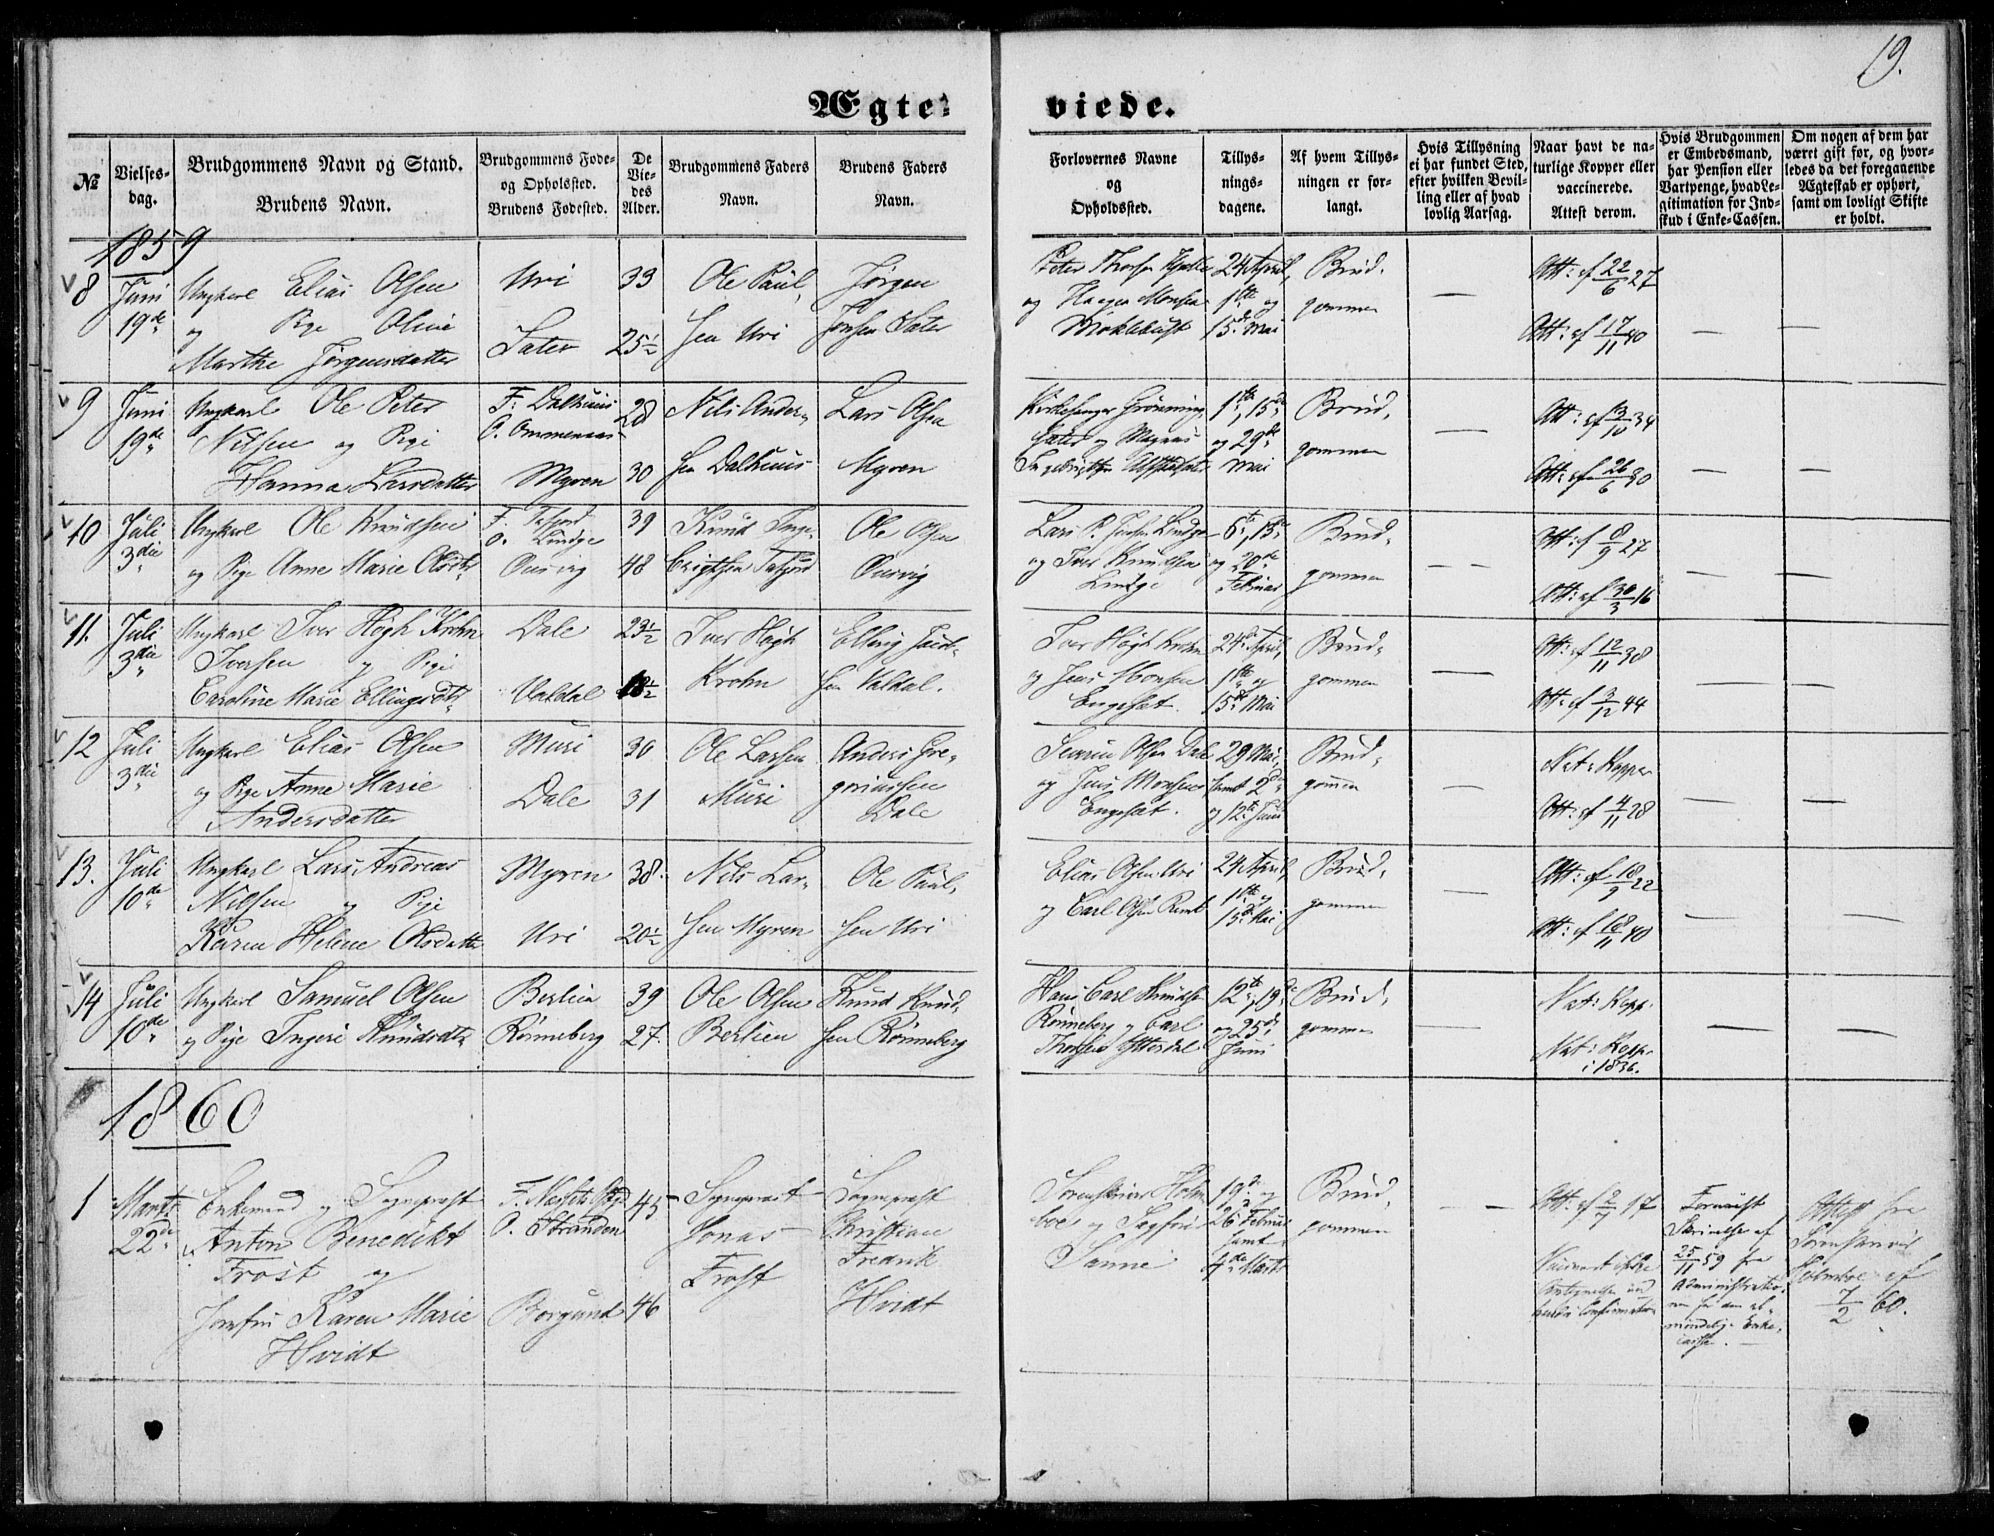 19.
Ægte=
viede.
№
Vielses-
dag.
Brudgommens Navn og Stand.
Brudens Navn.
Brudgommens Føde-
og Opholdssted.
Brudens Fødested.
De
Vie-
des
Alder.
Brudgommens Faders
Navn.
Brudens Faders
Navn.
Forlovernes Navne
og
Opholdssted.
Tillys-
nings-
dagene.
Af hvem Tillys-
ningen er for-
langt.
Hvis Tillysning
ei har fundet Sted,
efter hvilken Bevil-
ling eller af hvad
lovlig Aarsag.
Naar havt de na-
turlige Kopper eller
vaccinerede.
Attest derom.
Hvis Brudgommen
er Embedsmand,
har Pension eller
Vartpenge, hvad Le-
gitimation for Ind-
skud i Enke-Cassen.
Om nogen af dem har
været gift før, og hvor-
ledes da det foregaaende
Ægteskab er ophørt,
samt om lovligt Skifte
er holdt.
1859
8
Juni
19de
Ungkarl Elias Olsen
og Pige Oline
Marthe Jørgensdatter
Uri
Sater
33
25½
Ole Paul,
sen Uri
Jørgen
Jonsen Sater
og Haagen Monsen
24 April,
1ste og
15de Mai
Brud,
gommen
Att: af 22/6 27
Att: af 17/11 40
9
Juni
19de
Ungkarl Ole Peter
Nilsen og Pige
Hanna Larsdatter
F: Dalhuus
O. Ommenaas
Myren
28
30
Nils Ander-
sen Dalhuus
Lars Olsen
Myren
Kirkesanger Grønning,
1ste, 15de
og 29de
Mai
Brud,
gommen
Att: af 13/10 34
Att: af 26/6 30
10
Juli
3die
Ungkarl Ole Knudsen
og Pige Anne Marie Olsdtr
F. Tafjord
O. Lindge
Ousvig
39
48
Knud Inge,
brigtsen Tafjord
Ole Olsen
Ousvig
og Iver Knudsen
Lindge
6te, 13de
og 20de
Februar
Brud,
gommen
Att: af 8/9 27
Att: af 30/3 16
11.
Juli
3die
Ungkarl Iver Høgh Krohn
Iversen og Pige
Caroline Marie Ellingsdtr
Dale
Valdal
23½
18½
Iver Høgh
Krohn
Elling
sen Valdal.
Iver Høgh Krohn
og Jens Monsen
Engeset.
24de April,
1ste og
15de Mai
Brud,
gommen
Att: af 12/11 38
Att: af 3/12 44
12
Juli
3die
Ungkarl Elias Olsen
og Pige Anne Marie
Andersdatter
Muri
Dale
30
31
Ole Larsen
Muri
Anders Gre,
goriussen
Dale
Severin Olsen Dale
og Jens Monsen
Engeset.
29 Mai,
samt 2den
og 12te Juni
Brud,
gommen
Nat: Kopper
Att: af 4/11 28
13.
Juli
10de
Ungkarl Lars Andreas
Nilsen og Pige
Karen Helene Olsdatter
Myren
Uri
38.
20½
Nils Lar,
sen Myren
Ole Paul,
sen Uri
Elias Olsen Uri
og Carl Olsen
24 April,
1ste og
15de Mai
Brud,
gommen
Att: af 18/9 22
Att: af 18/11 40
14
Juli
10de
Ungkarl Samuel Olsen
og Pige Ingeri Knudsdtr
Berlien
Rønneberg
39
27.
Ole Olsen
Berlien
Knud Knud,
sen Rønneberg
Hans Carl Knudsen
Rønneberg og Carl
12te, 19de
og 25de
Juni
Brud,
gommen
Nat: Kopp.
Nat: Kopp.
i 1836.
1860
1
Marts
22de
Enkemand og Sogneprest
Anton Benedikt
Frost og
Jomfru Karen Marie
Hvidt
O. Stranden
Borgund
45
46
Sogneprest
Jonas
Frost
Sogneprest
Christian
Fredrik
Hvidt
Sorenskriver Holm
boe og
Sanne
19de og
26 Februar
samt
4de Marts
Brud,
gommen
Att: af 2/7 17
Skrivelse af
25/11 59 fra
Administratio,
nen for den al,
mindelige Enke,
casse.
Attest fra
Holmboe af
7/2 60.